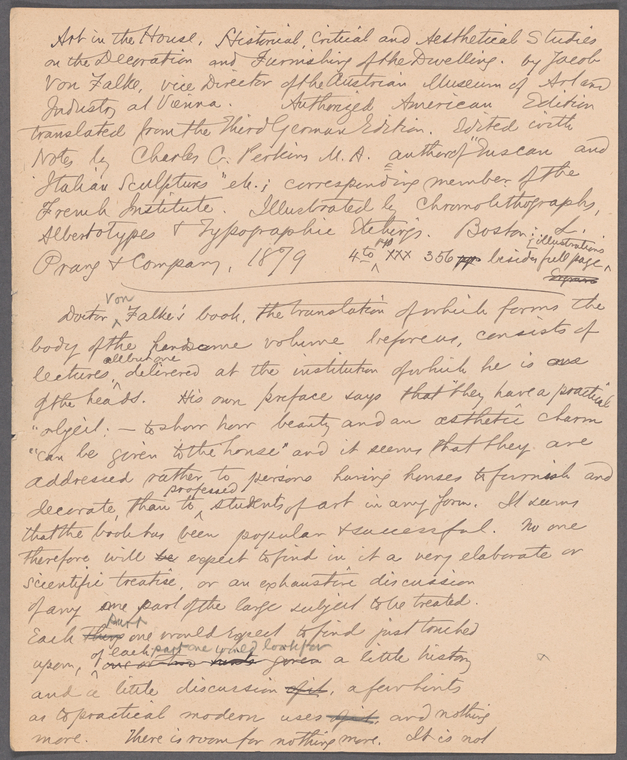 Art in the House. Historical, Critical and Aesthetical Studies
on the Decoration and Furnishing of the Dwelling. by Jacob
Von Falke, vice Director of the Austrian Museum of Art and
Industry at Vienna. Authorized American Edition
translated from the Third German Edition. Edited with
Notes by Charles C. Perkins M.A. author of "Tuscan and
Italian Sculptures" etc.; corresponding member of the
French Institute. Illustrated by Chromolithographs,
Albertotypes & Typographic Etchings. Boston: L.
Prang & Company, 1879 4to pp XXX 356 pp besides full page illustrations
Doctor Von Falke's book, the translation of which forms the
body of the handsome volume before us, consists of
lectures, all but one delivered at the institution of which he is one
of the heads. His own preface says that "they have a practical
"object: — to show how beauty and an æsthetic charm
"can be given to the house" and it seems that they are
addressed rather to persons having houses to furnish and
decorate, than to professed students of art in any form. It seems
that the book has been popular & successful. No one
therefore will be expect to find in it a very elaborate or
scientific treatise, or an exhaustive discussion
of any one part of the large subject to be treated.
Each part one would expect to find just touched
upon, of each part one would look for a little history
and a little discussion, a few hints
as to practical modern uses and nothing
more. There is room for nothing more. It is not